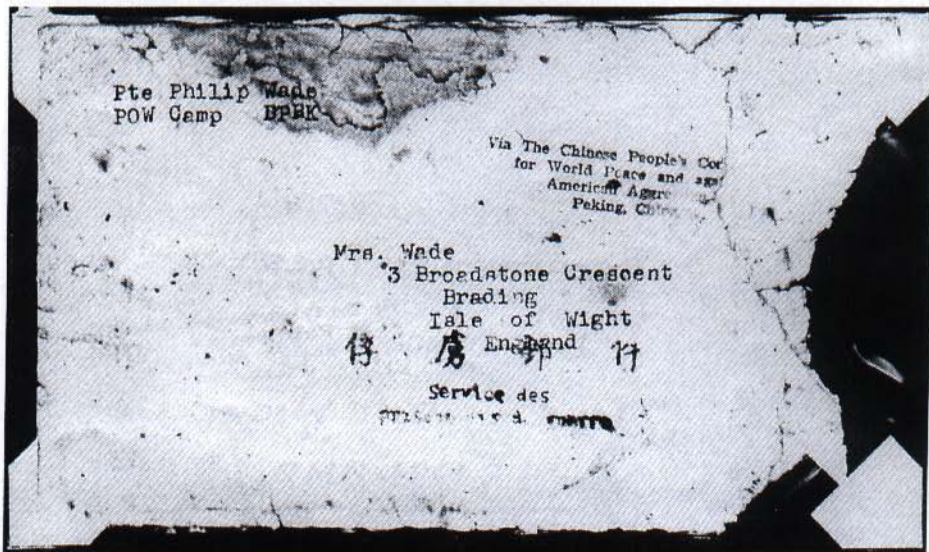 Pte Philip Wade
POW Camp DPRK
Via The Chinese People's Co
for World Peace and aga
American Aggre
Peking, China
Mrs. Wade
3 Broadstone Crescent
Brading
Isle of Wight
England
俘 虜 郵 件
Service des